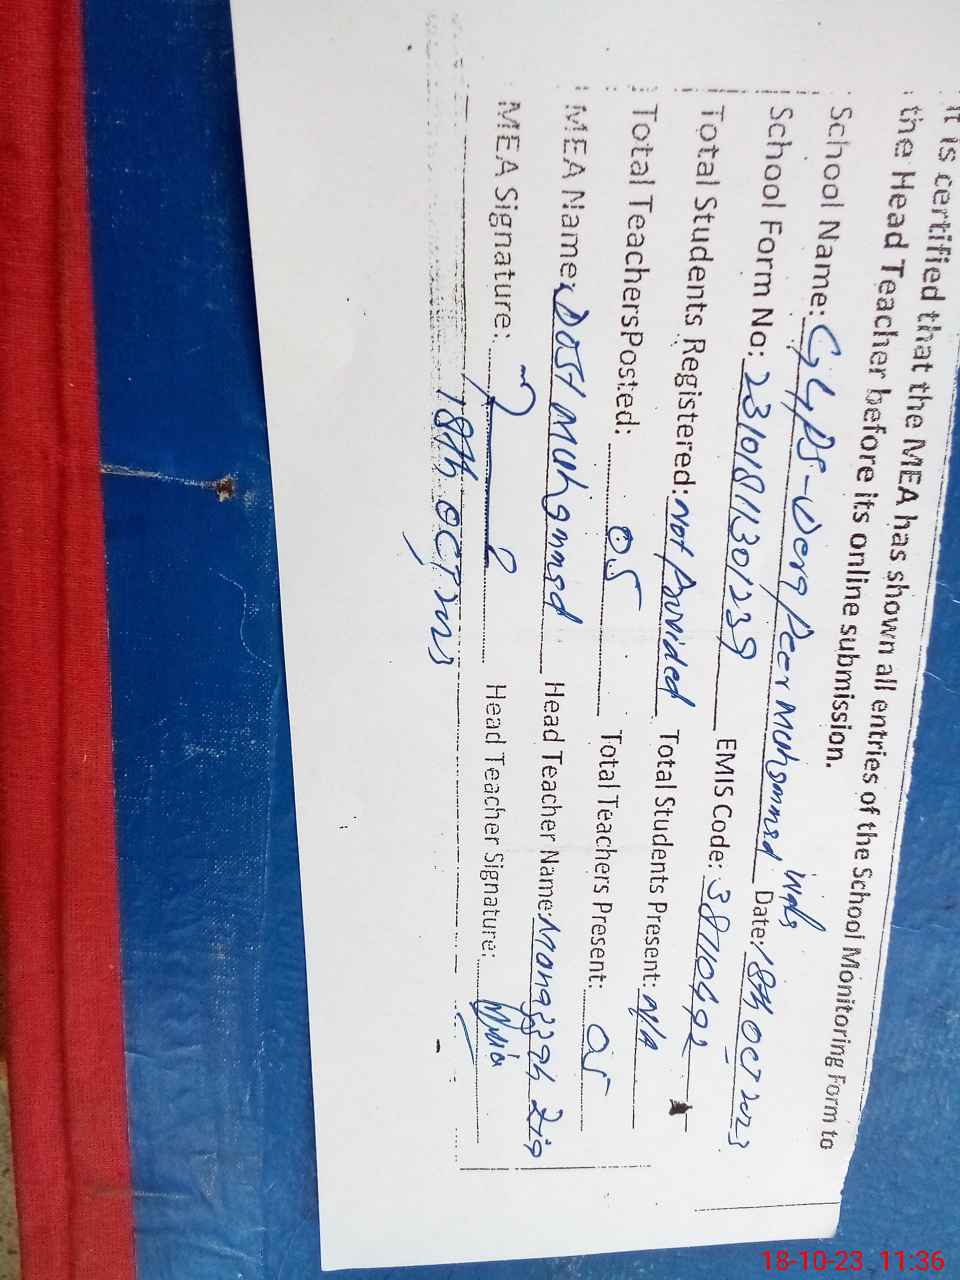 It is certified that the MEA has shown all entries of the School Monitoring Form to
the Head Teacher before its online submission.
School Name: GGPS-Dera Peer Muhammad Wala Date: 18th Oct 2023
School Form No: 23101811301239 EMIS Code: 38110492
Total Students Registered: Not Provided Total Students Present: N/A
Total Teachers Posted: 05 Total Teachers Present: 05
MEA Name: Dost Muhammad Head Teacher Name: Manazzah Zia
MEA Signature: Head Teacher Signature:
18th Oct, 2023
18-10-23 11:36